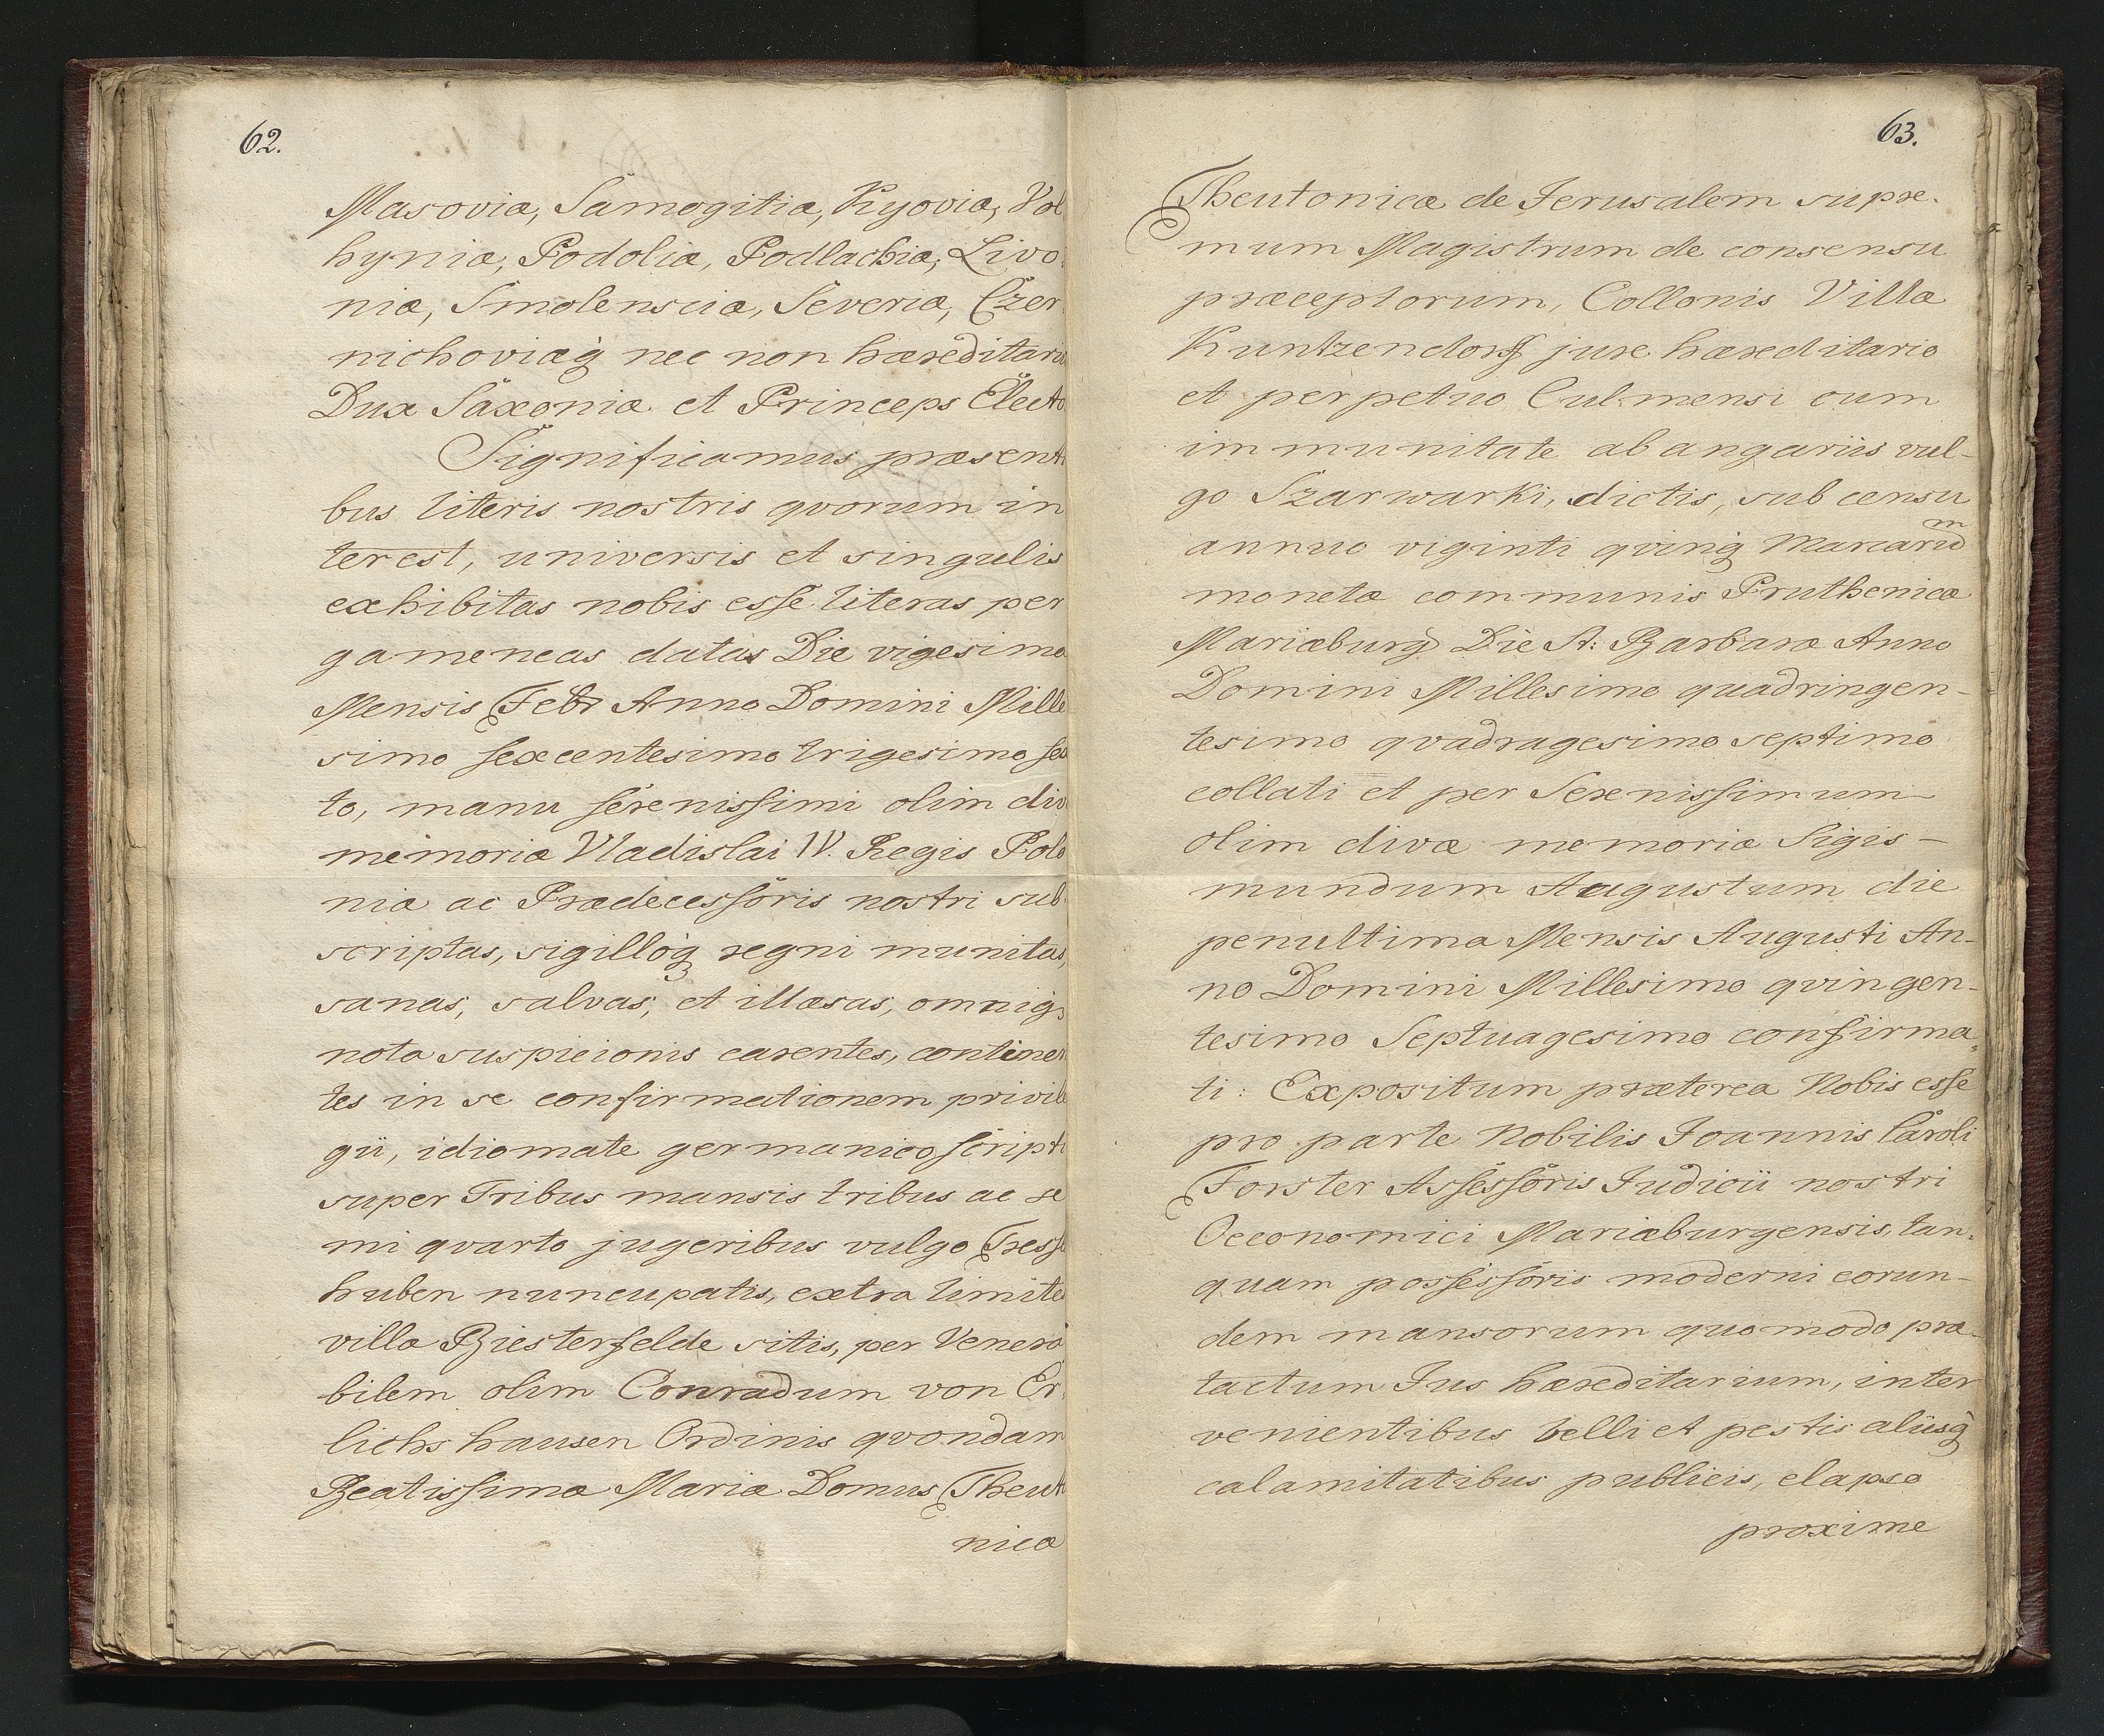 62.
Masoviæ, Samogitiæ, Kyoviæ, Vol
hyniæ, Podoliæ, Podlachiæ, Livo
niæ, Smolensciæ, Severiæ, Czer
nichoviæq̃ nec non hæreditari
Dux Saxoniæ et Princeps Electo
Significamus præsenti
bus literis nostris qvorum in
terest, universis et singulis
exhibitas nobis esse literas per
gameneas datas Die vigesima
Mensis Febr Anno Domini Mille
simo sexcentesimo trigesimo sex
to, manu serenissimi olim div
memoriæ Vladislai IV. Regis Polo
niæ ac Prædecessoris nostri sub
scriptas, sigilloq̃ regni munitas,
sanas, salvas, et illæsas, omniq̃
nota suspicionis carentes, continen
tes in se confirmationem privile
gii, idiomate germanico scripti
super Tribus mansis tribus ac se
mi qvarto jugeribus vulgo Tress
huben nuncupatis, extra limite
villæ Biesterfelde sitis, per Venera
bilem olim Conradum von Er
lichshausen Ordinis qvondam
Beatissimæ Mariæ Domus Theut
nicæ
63.
Theutonicæ de Jerusalem supre-
mum Magistrum de consensu
præceptorum, Collonis Villæ
Kuntzendorff jure hæreditario
et perpetuo Culmensi cum
immunitate ab angariis vul-
go Szarwarki, dictis, sub censu
annuo viginti qvinq̃ Marcarũm
monetæ communis Pruthenicæ
Mariæburg Die St: Barbaræ Anno
Domini Millesimo quadringen-
tesimo qvadragesimo septimo
collati et per Serenissimum
olim divæ memoriæ Sigis-
mundum Augustum die
penultima Mensis Augusti An-
no Domini Millesimo qvingen-
tesimo Septuagesimo confirma-
ti: Expositum præterea Nobis esse
pro parte Nobilis Joannis Caroli
Forster Assessoris Judicii nostri
Oeconomici Mariæburgensis, tan-
quam possessoris moderni eorun-
dem mansorum quomodo præ-
tactum Jus hæreditarium, inter
venientibus belli et pestis aliisq̃
calamitatibus publicis, elapso
proxime